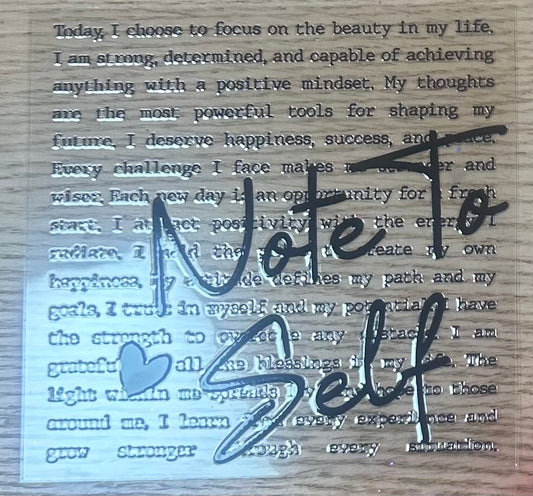 Today, I choose to focus on the beauty in my life.
I am strong, determined, and capable of achieving
anything with a positive mindset. My thoughts
are the most powerful tools for shaping my
future. I deserve happiness, success, and peace.
Every challenge I face makes and
wiser. Each new day is an opportunity for a fresh
start. I attract positivity with the energy I
radiate. I hold the create my own
happiness. My attitude defines my path and my
goals. I trust in myself and my potential. I have
the strength to overcome any obstacle. I am
grateful all the blessings in my life. The
light within me spreads hope to those
around me. I learn from every experience and
grow stronger through every situation.
Note To
Self